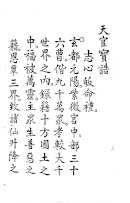 天官寶誥
志心皈命禮
玄都元陽紫微宮中部三十
六曹偕九千萬眾考較大千
世界之內錄籍十方國土之
中福被萬靈主眾生善惡之
籍恩覃三界致諸仙升降之